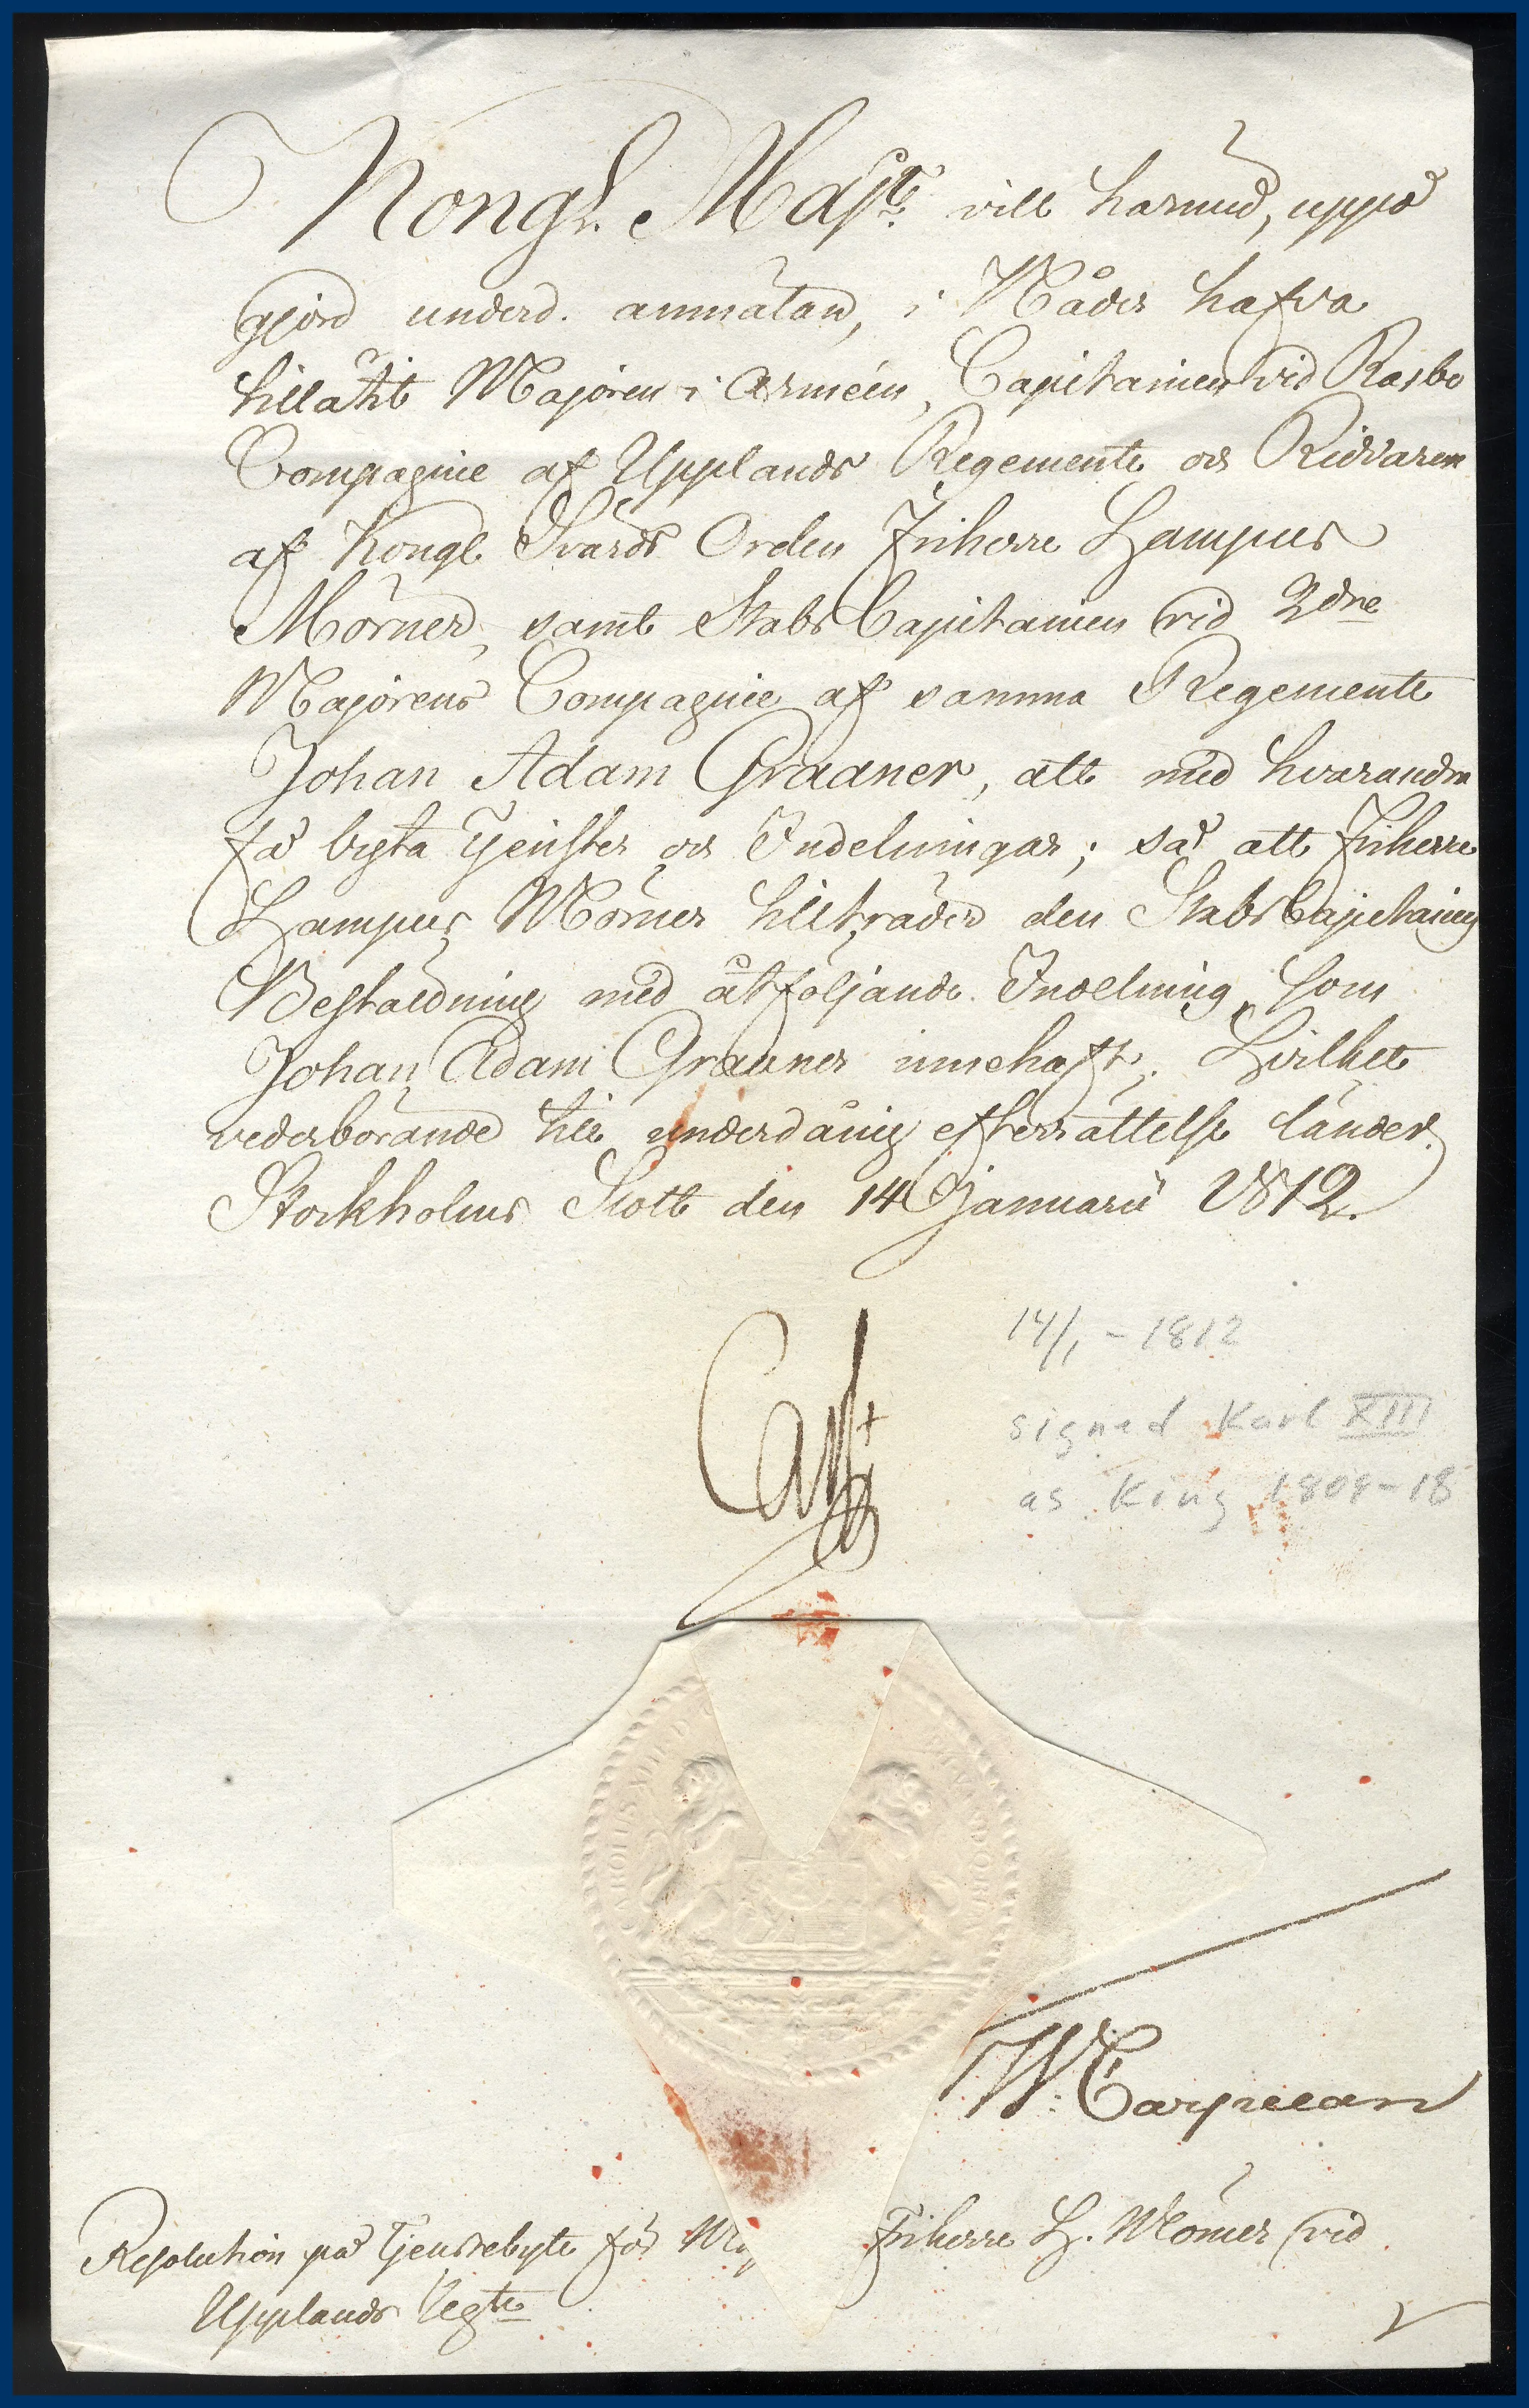 Kongl. Maj:t vill härmed, uppå
gjord underd. anmälan, i Nåder hafva
tillåtit Majoren i Arméen, Capitainen vid Rasbo
Compagnie af Upplands Regemente och Riddaren
af Kongl Svärds Orden Friherre Hampus
Mörner, samt StabsCapitainen vid 2dre
Majorens Compagnie af samma Regemente
Johan Adam Graaner, att med hvarandra
få byta Tjenster och Indelningar; så att Friherre
Hampus Mörner tillträder den StabsCapitains
Beställning med åtföljande Indelning, som
Johan Adam Graaner innehaft. Hvilket
vederbörande till underdånig efterrättelse länder.
Stockholms Slott den 14 Januarii 1812.
Carl
14/1 - 1812
signed Karl XIII
as King 1809-18
CAROLUS XIII D
W. Carpelan
Resolution på Tjenstebyte för Friherre H. Mörner vid
Upplands Regte